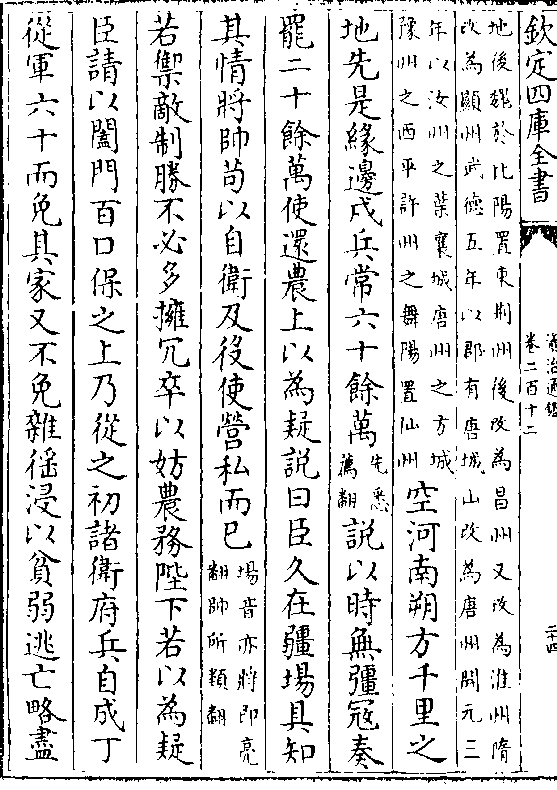 欽定四庫全書
資治通鑑
卷二百十二
二十四
地後魏於比陽置東荆州後改為昌州又改為淮州隋
改為顯州武徳五年以郡有唐城山改為唐州開元三
年以汝州之葉襄城唐州之方城
豫州之西平許州之舞陽置仙州
空河南朔方千里之
地先是緣邊戍兵常六十餘萬
先悉
薦翻
說以時無疆冦奏
罷二十餘萬使還農上以為疑說曰臣久在疆埸具知
其情將帥苟以自衛及役使營私而已
埸音亦將即亮
翻帥所類翻
若禦敵制勝不必多擁冗卒以妨農務陛下若以為疑
臣請以闔門百口保之上乃從之初諸衛府兵自成丁
從軍六十而免其家又不免雜徭浸以貧弱逃亡略盡